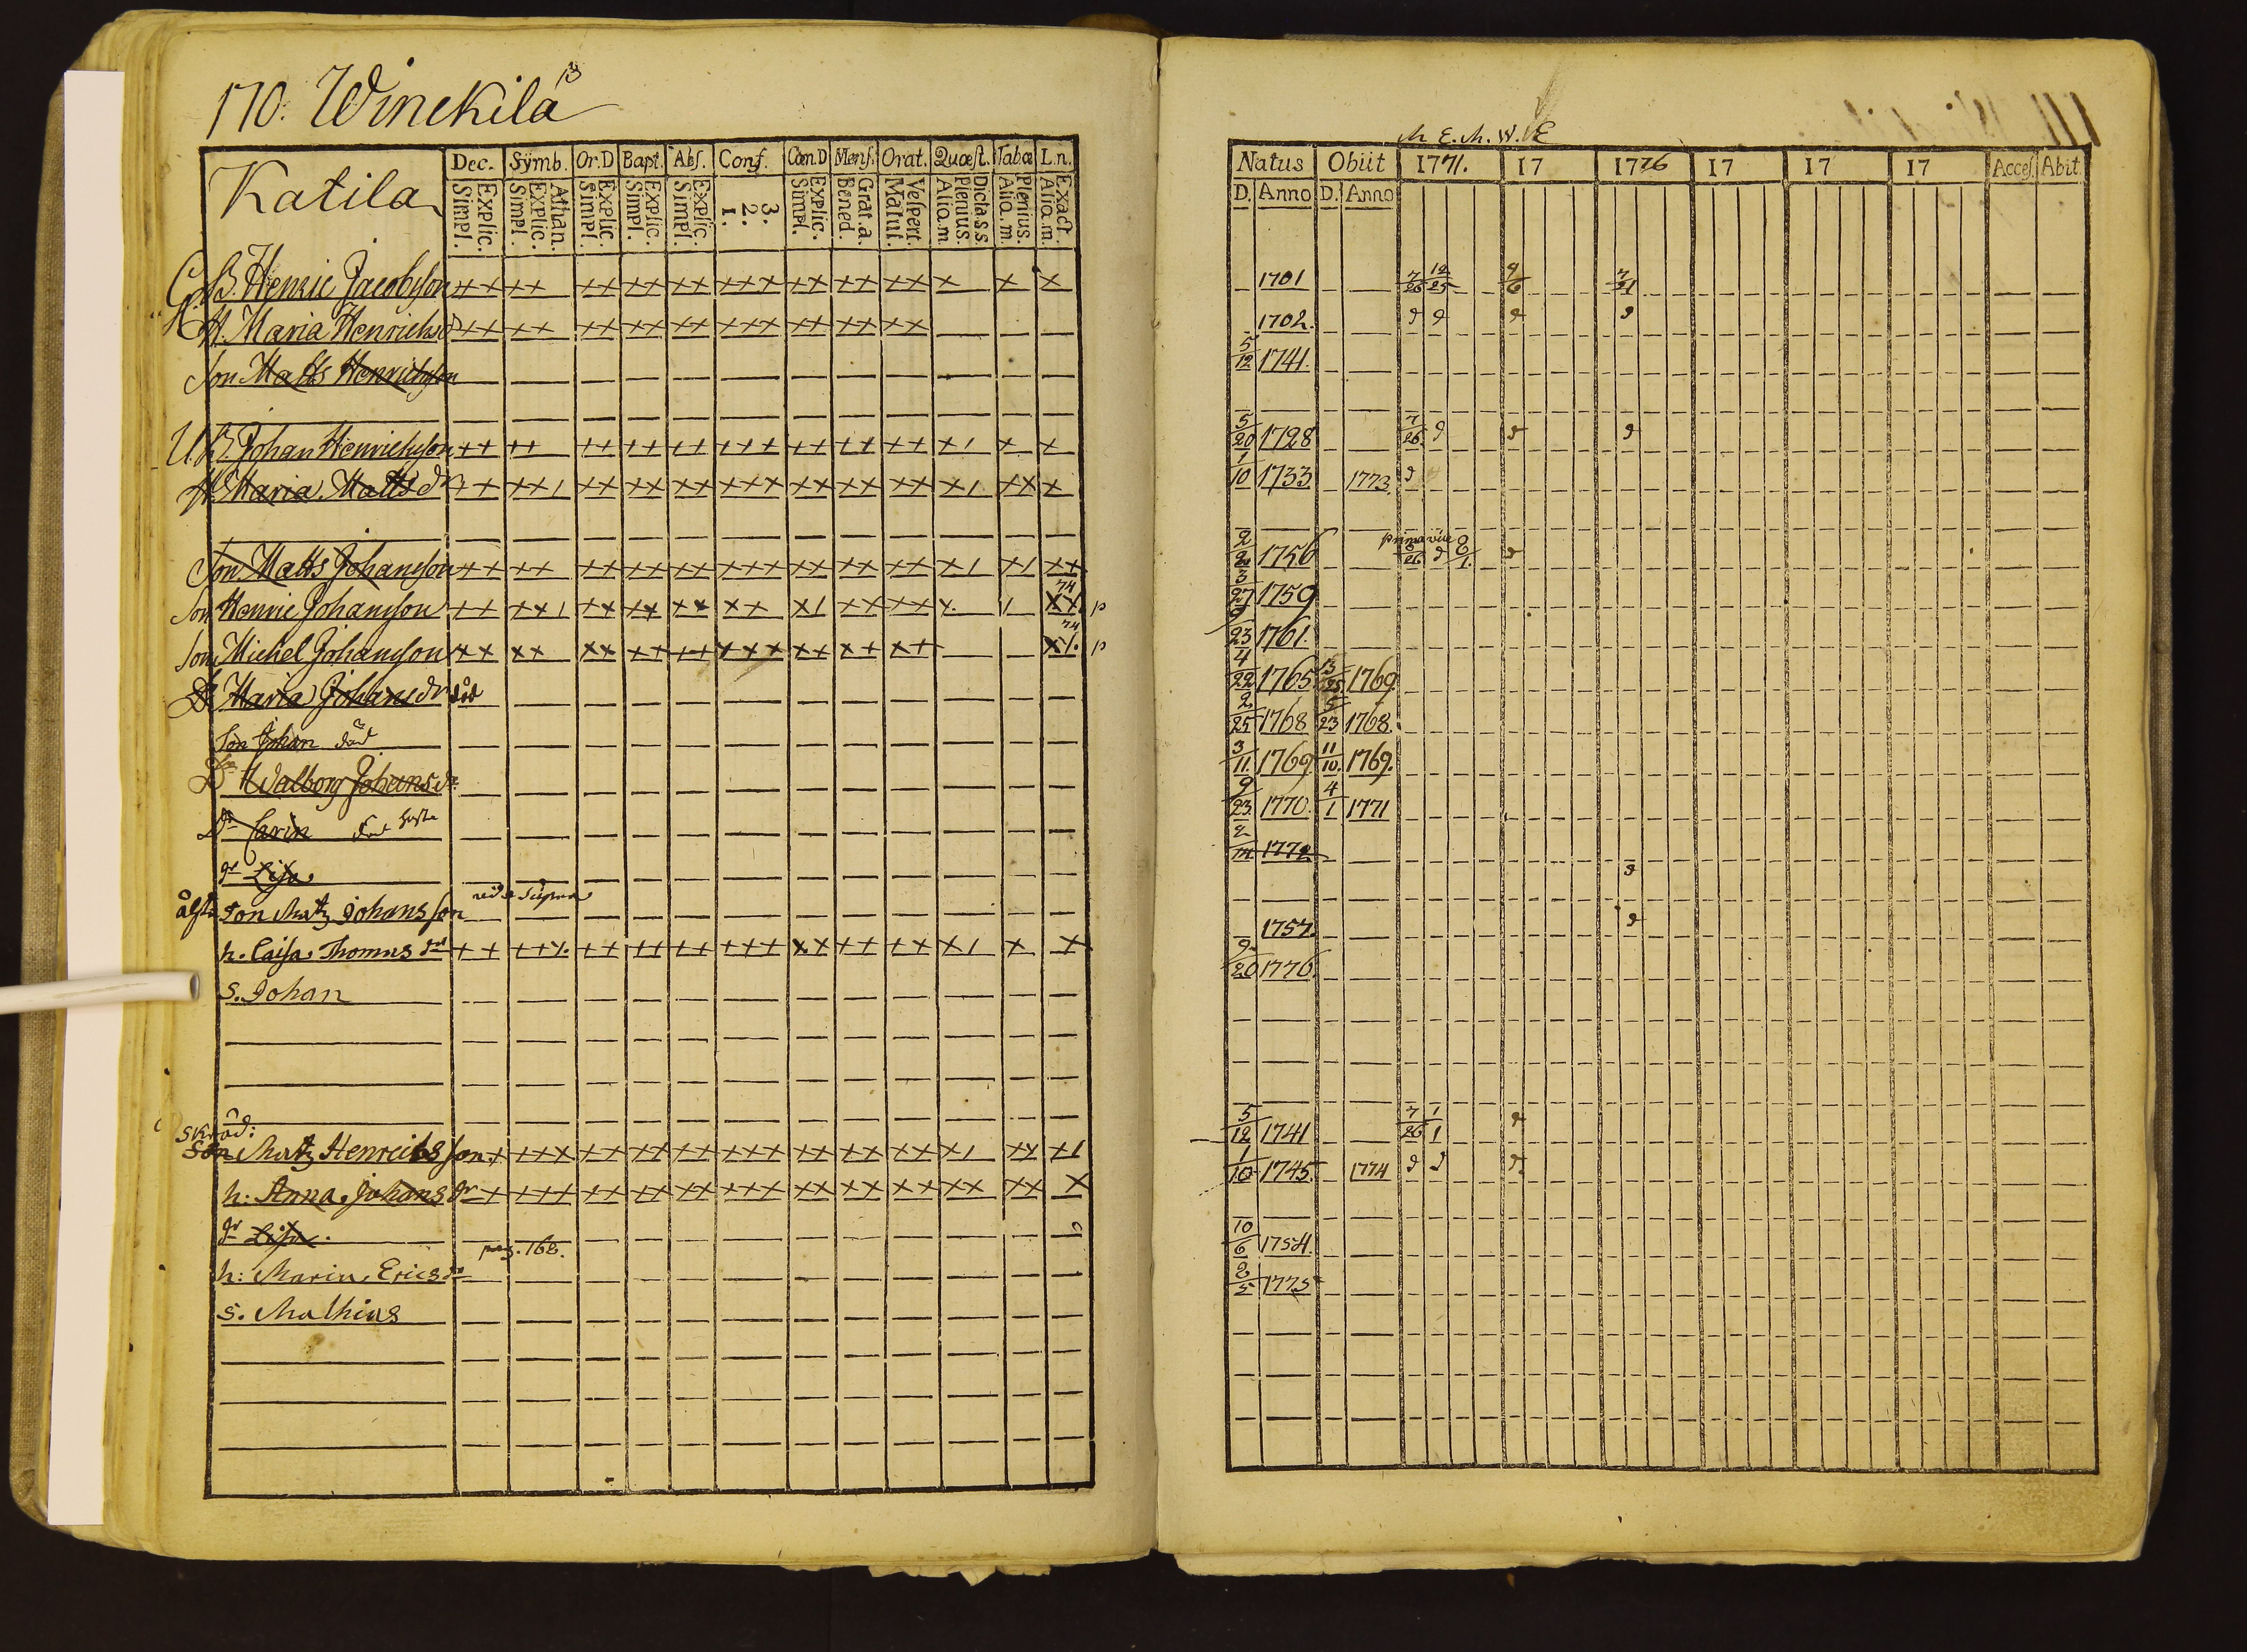 170. Winckilä
Katila
Dec. Sÿmb. Or.D Bapt. Abſ. Conf. Cœn.D Menſ. Orat. Quœſt. Tabœ L.n.
Explic. Simpl. Athan. Explic. Simpl. Explic. Simpl. Explic. Simpl. Explic. Simpl. 3. 2. 1. Explic. Simpl. Grat.a. Bened. Veſpert. Matut. Dicta.s.s. Plenius. Aliq.m. Plenius. Aliq.m. Exact. Aliq.m.
B. Henric Jacobsson ++ ++ ++ ++ ++ +++ ++ ++ ++ + + +
H. Maria Henrichsdr ++ ++ ++ ++ ++ +++ ++ ++ ++
Son Matts Henrichsson
B. Johan Henrichsson ++ ++ ++ ++ ++ +++ ++ ++ ++ +/ + +
H. Maria Mattsdr ++ ++/ ++ ++ ++ +++ ++ ++ ++ +/ ++ +
Son Matts Johansson ++ ++ ++ ++ ++ +++ ++ ++ ++ +/ +/ ++
Son Henric Johansson ++ ++/ ++ ++ ++ ++ +/ ++ ++ +. / 74 p
Son Michel Johansson ++ ++ ++ ++ ++ +++ ++ ++ ++ 74 p
Dr Maria Johansdr död
Son Johan död
Dr Walborg Johansdr
Dr Carin död
dr Lisa
Son Matz Johansson vide supra
h. Caisa Thomasdr ++ ++/. ++ ++ ++ +++ ++ ++ ++ +/ + +
s. Johan
skräd:
Son Matz Henricsson + +++ ++ ++ ++ +++ ++ ++ ++ +/ ++ +/
h: Anna Johansdr + +++ ++ ++ ++ +++ ++ ++ ++ ++ ++ +
dr Lisa.
pag. 168.
h: Marin Ericsdr
s. Mathias
M E. M. W. E
Natus Obiit 1771. 17 1776 17 17 17 Acceſ. Abit.
D. Anno D. Anno
1701 7/26 12/25 4/6 7/21
1702.
5/12 1741.
5/20 1728 7/26
1/10 1733 1773
1756
3/27 1759
9/23 1761.
4/22 1765 1769.
2/25 1768 5/23 1768.
3/11. 1769 11/10. 1769.
9/23. 1770. 4/1 1771
1772
1757.
9/20 1776.
5/12 1741 7/26 1/1
1/10 1745. 1774
10/6 1754.
2/5 1775